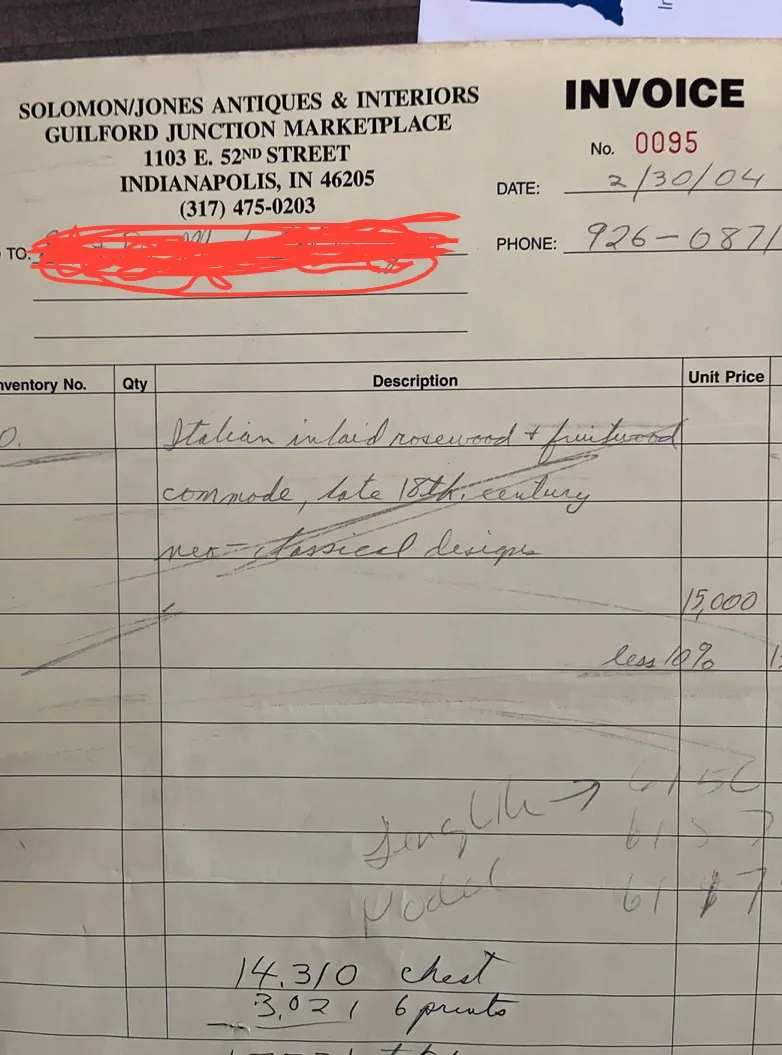 SOLOMON/JONES ANTIQUES & INTERIORS
GUILFORD JUNCTION MARKETPLACE
1103 E. 52ND STREET
INDIANAPOLIS, IN 46205
(317) 475-0203
INVOICE
No. 0095
DATE: 2/30/04
PHONE: 926-0871
TO:
nventory No. Qty Description Unit Price
Italian inlaid rosewood + fruitwood
commode, late 18th. century
neo-classical designs
15,000
less 10%
Length → 6156
Model
14,310 chest
3,021 6 prints